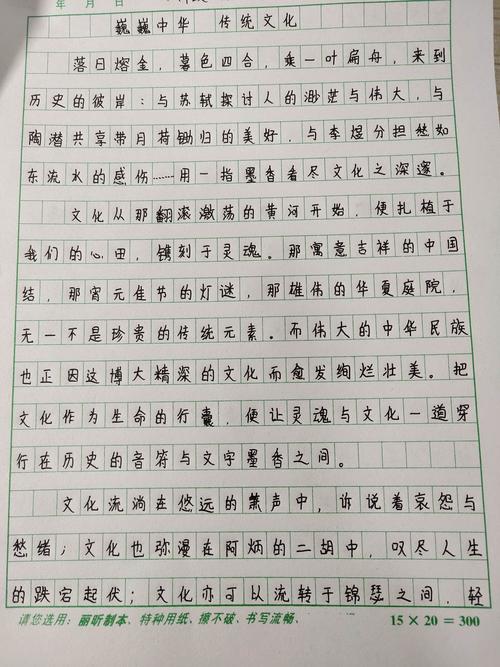 年 月 日
巍巍中华 传统文化
落日熔金，暮色四合，乘一叶扁舟，来到
历史的彼岸：与苏轼探讨人的渺茫与伟大，与
陶潜共享带月荷锄归的美好，与李煜分担愁如
东流水的感伤……用一指墨香看尽文化之深邃。
文化从那翻滚激荡的黄河开始，便扎植于
我们的心田，镌刻于灵魂。那寓意吉祥的中国
结，那宵元佳节的灯谜，那雄伟的华夏庭院，
无一不是珍贵的传统元素。而伟大的中华民族
也正因这博大精深的文化而愈发绚烂壮美。把
文化作为生命的行囊，便让灵魂与文化一道穿
行在历史的音符与文字墨香之间。
文化流淌在悠远的箫声中，诉说着哀怨与
愁绪；文化也弥漫在阿炳的二胡中，叹尽人生
的跌宕起伏；文化亦可以流转于锦瑟之间，轻
请您选用：丽昕制本、特种用纸、擦不破、书写流畅、 15 × 20 = 300